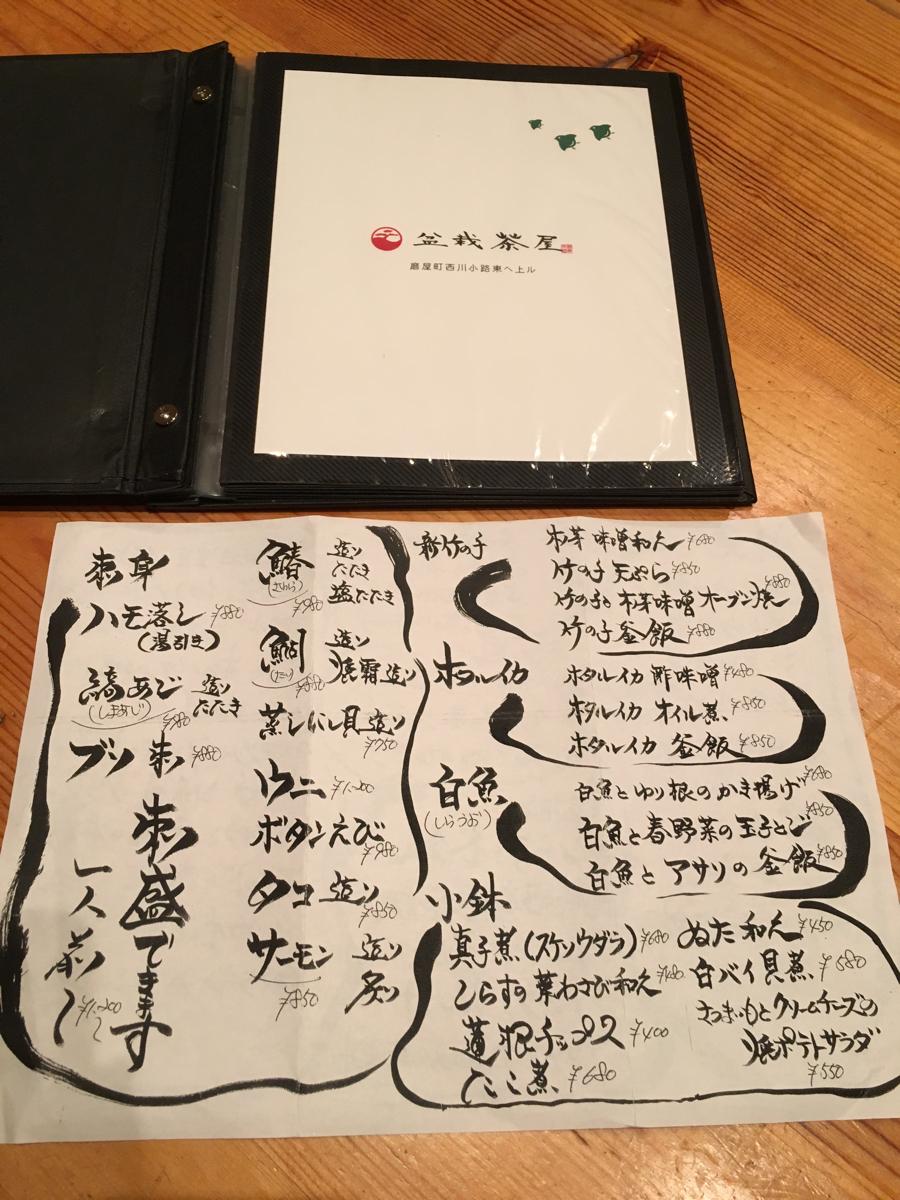 盆栽茶屋
磨屋町西川小路東へ上ル
刺身
ハモ落し ¥880
(湯引き)
縞あじ 造り たたき
(しまあじ) ¥980
ブリ 刺 ¥880
刺盛できます
一人前
¥1,200〜
鰆 造り たたき 塩たたき
(さわら) ¥980
鯛 造り 焼霜造り
(たい) ¥880
蒸しにし貝造り
¥750
ウニ ¥1,200
ボタンえび
¥980
タコ 造り
¥850
サーモン 造り 炙り
¥850
新竹の子
木芽味噌和え ¥680
竹の子 天ぷら ¥850
竹の子と木芽味噌オーブン焼 ¥880
竹の子釜飯 ¥880
ホタルイカ
ホタルイカ 酢味噌 ¥480
ホタルイカ オイル煮 ¥850
ホタルイカ 釜飯 ¥850
白魚
(しらうお)
白魚とゆり根のかき揚げ ¥680
白魚と春野菜の玉子とじ ¥850
白魚と アサリの 釜飯 ¥850
小鉢
真子煮(スケソウダラ) ¥680
しらすの葉わさび和え ¥480
蓮根チップス ¥400
たこ煮 ¥680
ぬた和え ¥450
白バイ貝煮 ¥580
さつまいもとクリームチーズの
焼ポテトサラダ
¥550